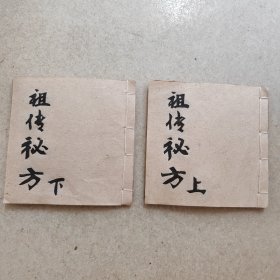 祖传秘方下
祖传秘方上